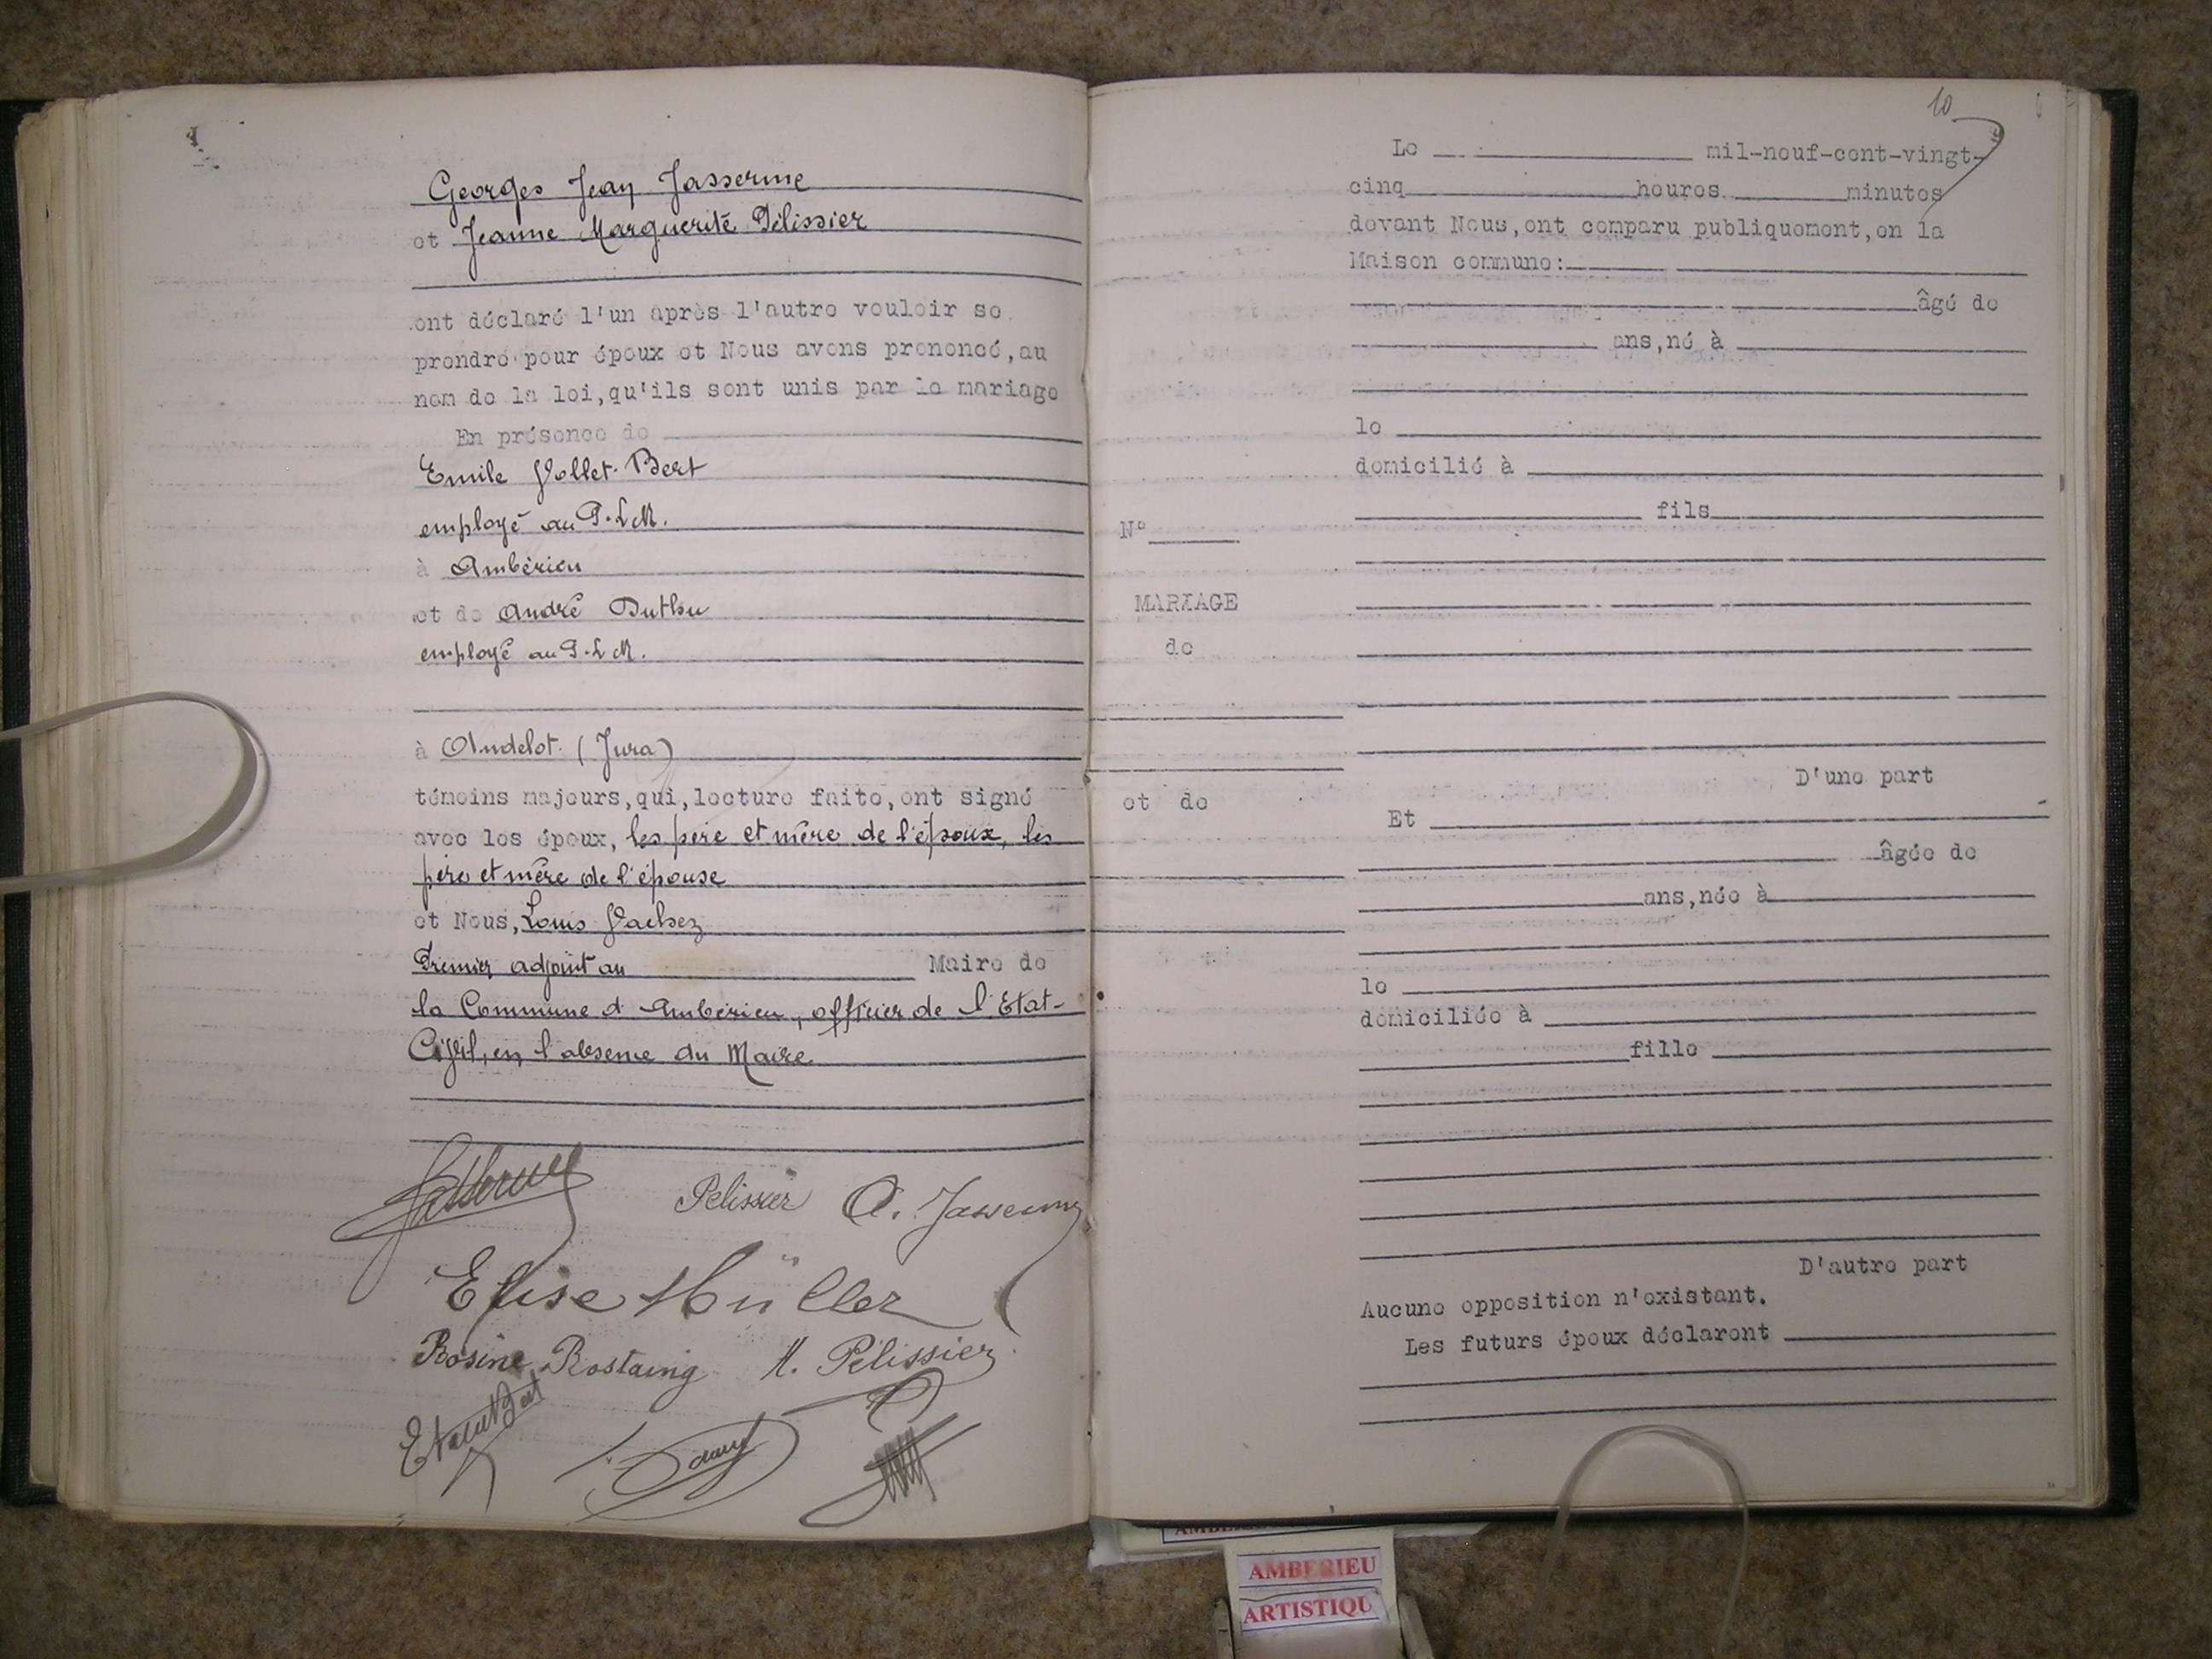 Georges Jean Jasserme
et Jeanne Marguerite Pélissier
ont déclaré l'un après l'autre vouloir se
prendre pour époux et Nous avons prononcé, au
nom de la loi, qu'ils sont unis par le mariage
En présence de
Emile Vollet-Bert
employé au P.L.M.
à Ambérieu
et de André Duthu
employé au P.L.M.
à Andelot (Jura)
témoins majeurs, qui, lecture faite, ont signé
avec les époux, les père et mère de l'époux, les
père et mère de l'épouse
et Nous, Louis Vachez
Premier adjoint au Maire de
la Commune d'Ambérieu, officier de l'Etat-
Civil, en l'absence du Maire
Pelissier
Elise Müller
Rosine Rostaing M. Pélissier
10
Le mil-neuf-cent-vingt-
cinq heures minutes
devant Nous, ont comparu publiquement, en la
Maison commune:
âgé de
ans, né à
le
domicilié à
fils
N°
MARIAGE
de
et de
D'une part
Et
âgée de
ans, née à
le
domiciliée à
fille
D'autre part
Aucune opposition n'existant.
Les futurs époux déclarent
AMBERIEU
ARTISTIQU